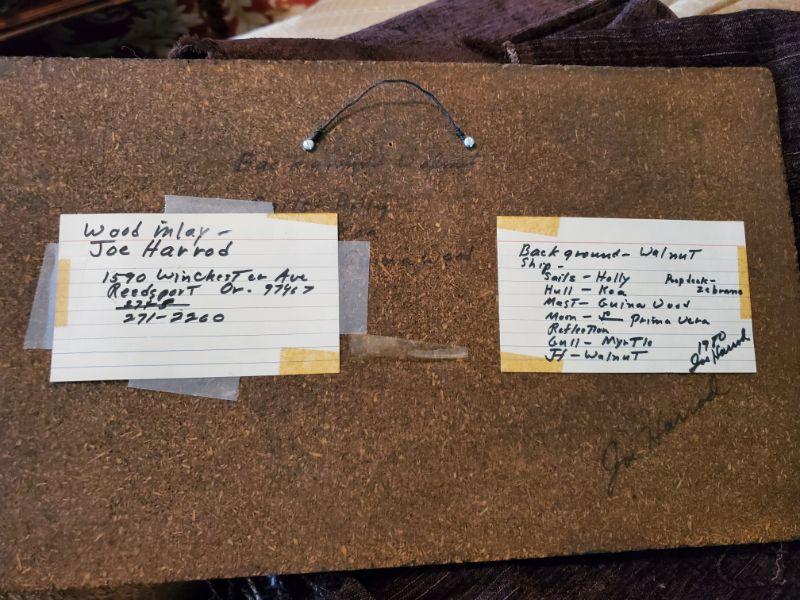 Background Walnut
Holly
wood
Wood inlay -
Joe Harrod
1590 Winchester Ave
Reedsport Or. 97467
271-2260
Background - Walnut
Ship -
Sails - Holly
Poopdeck -
Zebrano
Hull - Koa
Mast - Guina Wood
Moon - & Prima Vera
Reflection
Gull - Myrtle
Walnut
1980
Joe Harrod
Joe Harrod